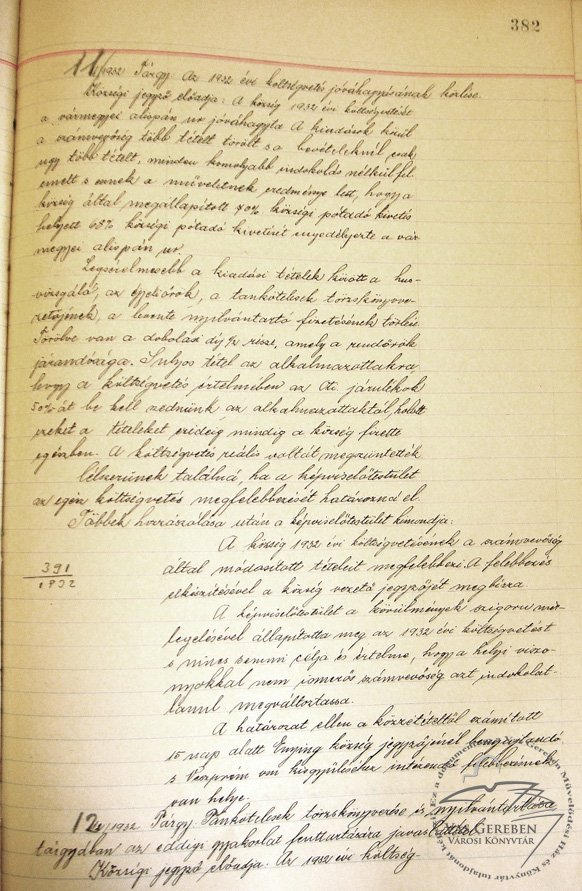 382
11/1932 Tárgy: Az 1932 évi költségvetés jóváhagyásának közlése.
Községi jegyző előadja: A község 1932 évi költségvetését
a vármegyei alispán ur jóváhagyta. A kiadások közül
a számvevőség több tételt törölt s a bevételeknél csak
ugy több tételt, minden komolyabb indokolás nélkül fel
emelt s ennek a műveletnek eredménye lett, hogy a
község által megállapitott 70% községi pótadó kivetés
helyett 68% községi pótadó kivetését engedélyezte a vár
megyei alispán ur.
Legsérelmesebb a kiadási tételek között a hus-
vizsgáló, az éjjeliőrök, a tankötelesek törzskönyvve-
zetőjének, a levente nyilvántartó fizetésének törlése.
Törölve van a dobolási dij ½ része, amely a rendőrök
járandósága. Sulyos tétel az alkalmazottakra,
hogy a költségvetés értelmében az Oti. járulékok
50%át be kell szednünk az alkalmazottaktól, holott
ezeket a tételeket ezideig mindig a község fizette
egészben. A költségvetés reális voltát megszüntették.
Célszerünek találná, ha a képviselőtestület
az egész költségvetés megfellebbezését határozná el.
Többek hozzászólása után a képviselőtestület kimondja:
A község 1932 évi költségvetésének a számvevőség
által módositott tételeit megfelebbezi. A felebbezés
elkészitésével a község vezető jegyzőjét megbizza.
391
1932
A képviselőtestület a körülmények szigoru mér-
legelésével állapitotta meg az 1932 évi költségvetést
s nincs semmi célja és értelme, hogy a helyi viszo-
nyokkal nem ismerős számvevőség azt indokolat-
lanul megváltoztassa.
A határozat ellen a közzétételtől számitott
15 nap alatt Enying község jegyzőjénél benyujtandó
s Veszprém vm kisgyüléséhez intézendő felebbezésnek
van helye.
12/1932 Tárgy: Tankötelesek törzskönyvezése és nyilvántartása
tárgyában az eddigi gyakorlat fenttartására javaslattétel.
Községi jegyző előadja: Az 1932 évi költség-
GEREBEN
VÁROSI KÖNYVTÁR